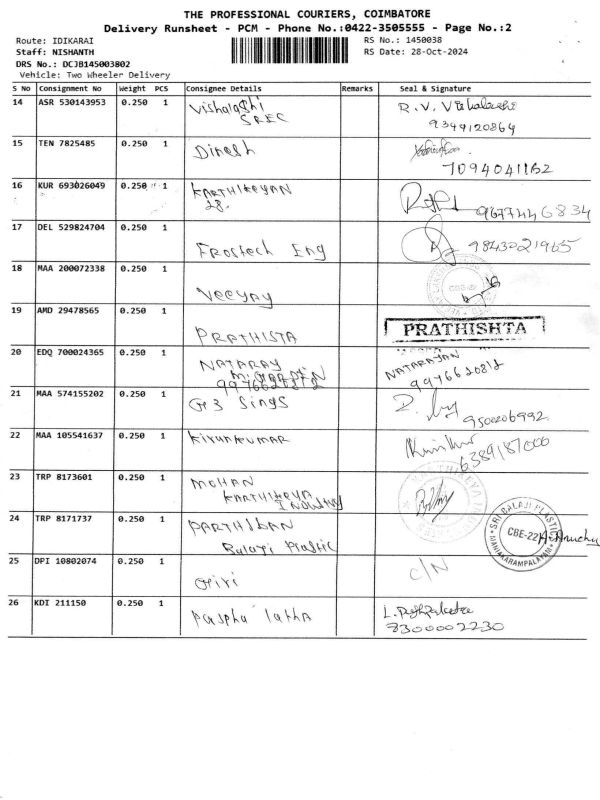 THE PROFESSIONAL COURIERS, COIMBATORE
Delivery Runsheet - PCM - Phone No.:0422-3505555 - Page No.:2
Route: IDIKARAI
RS No.: 1450038
Staff: NISHANTH
RS Date: 28-Oct-2024
DRS No.: DCJB145003802
Vehicle: Two Wheeler Delivery
S No Consignment No Weight PCS Consignee Details Remarks Seal & Signature
14 ASR 530143953 0.250 1 Vishalaghi
SREC
9349120864
15 TEN 7825485 0.250 1 Dinesh
7094041162
16 KUR 693026049 0.250 1 KARTHIKEYAN
28.
9677446834
17 DEL 529824704 0.250 1 Frostech Eng
9843021965
18 MAA 200072338 0.250 1 Veejay
19 AMD 29478565 0.250 1 PRATHISTA
PRATHISHTA
20 EDQ 700024365 0.250 1 NATARAJ
NATARAJAN
9976620812
21 MAA 574155202 0.250 1 G3 Sings
9500206992
22 MAA 105541637 0.250 1 KIRUNKUMAR
6389187000
23 TRP 8173601 0.250 1 MOHAN
KARTHIKEYA
INDUSTRY
24 TRP 8171737 0.250 1 PARTHIBAN
Balaji Plastic
SRI BALAJI PLASTIC
CBE-22
MANIAKARAMPALAYAM
25 DPI 10802074 0.250 1 Giri
C/N
26 KDI 211150 0.250 1 Paspha latha
8300002230